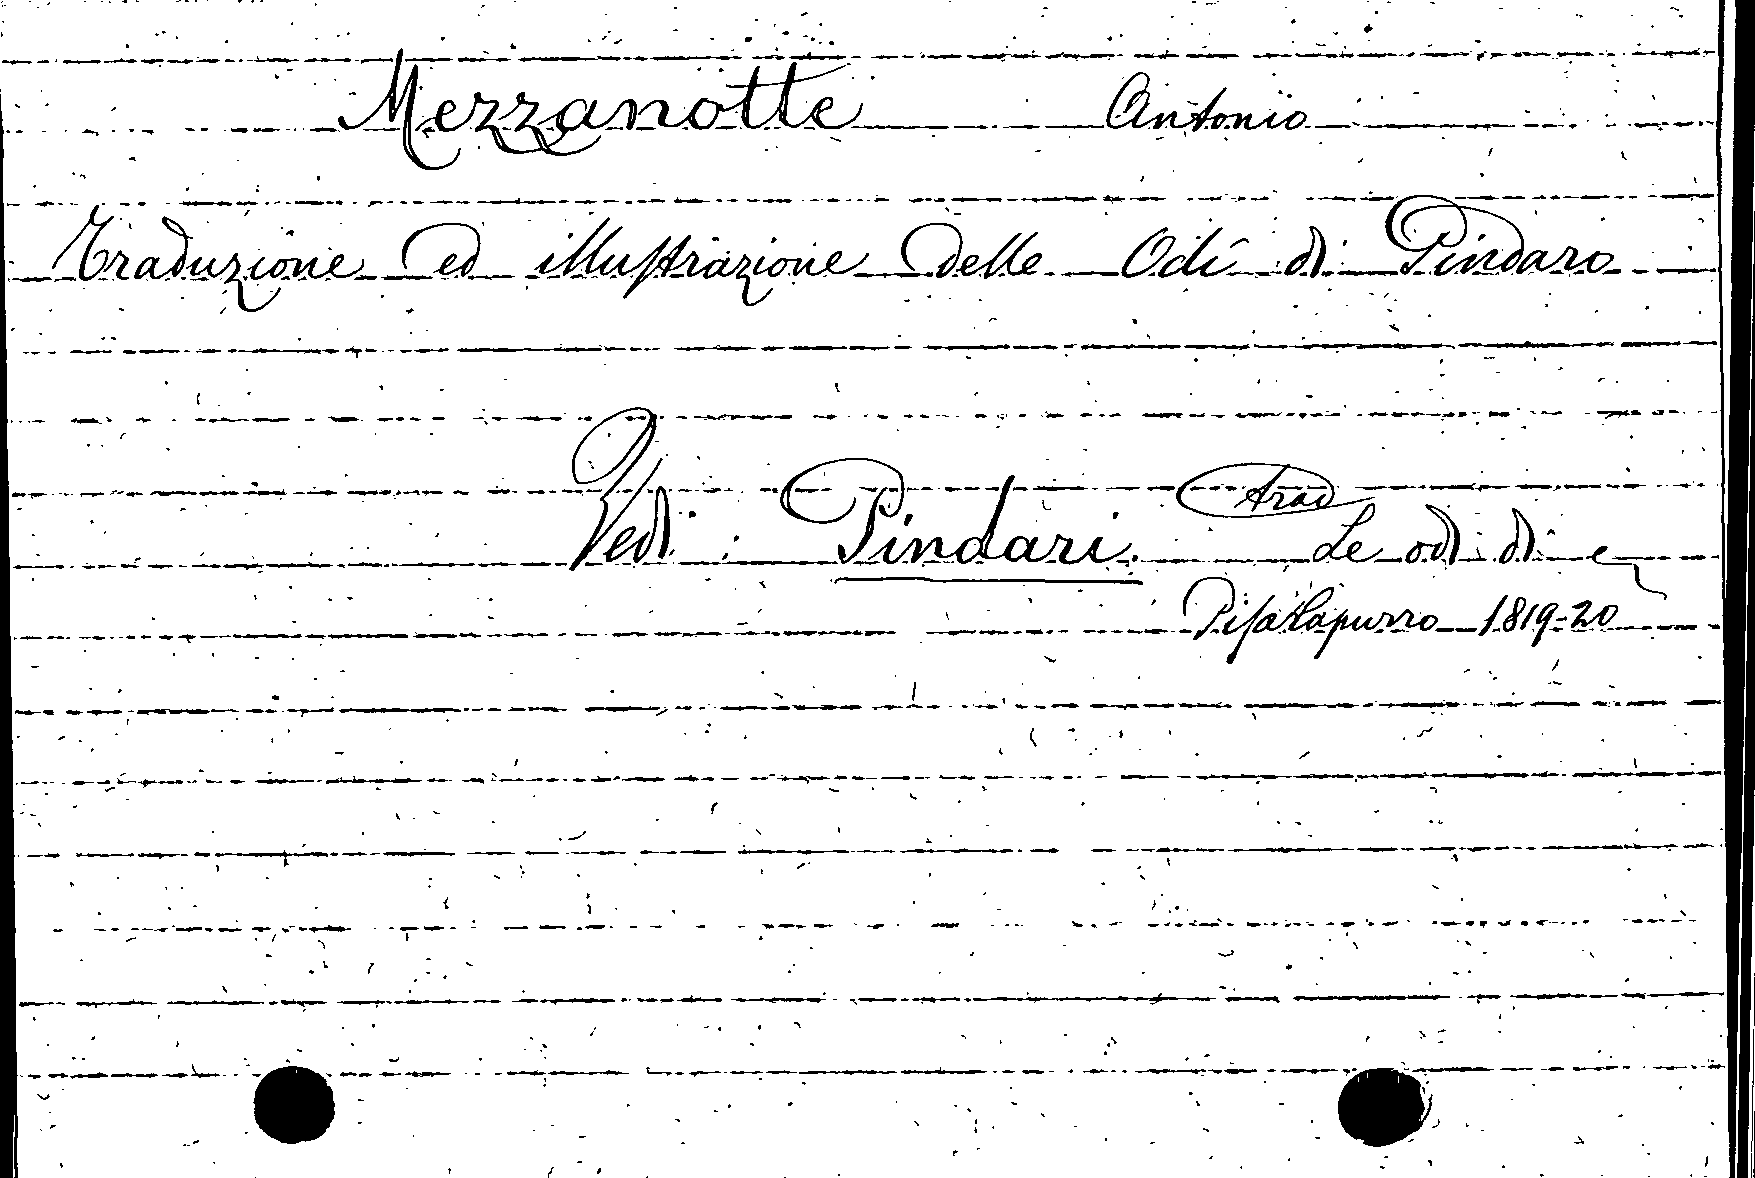 Mezzanotte Antonio
Traduzione ed illustrazione delle Odi di Pindaro
Vedi: Pindari. Le odi di
Pisa Capurro 1819-20